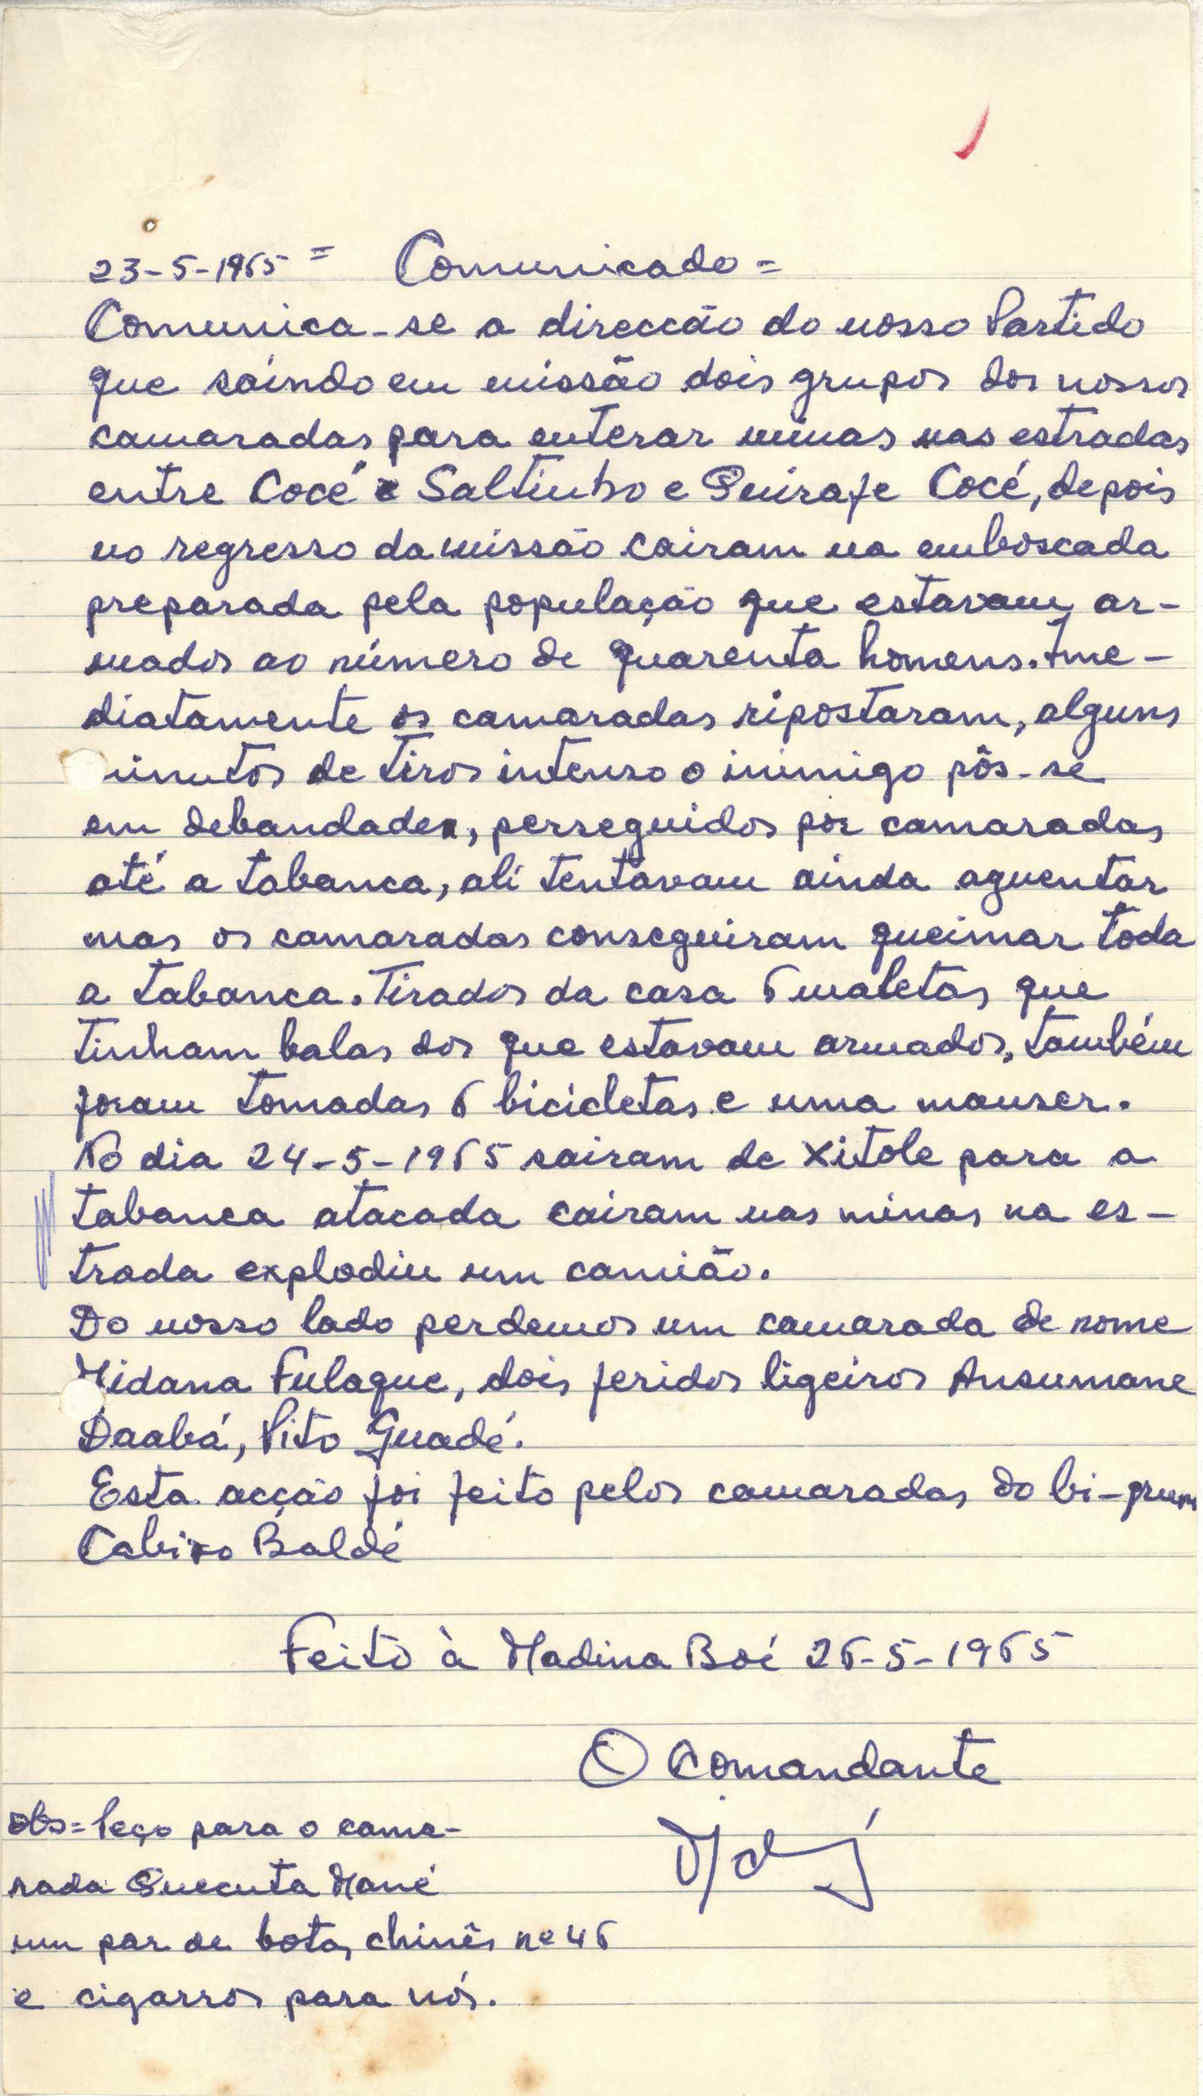 23-5-1965 = Comunicado =
Comunica-se a direcção do nosso Partido
que saindo em missão dois grupos dos nossos
camaradas para enterar minas nas estradas
entre Cocé e Saltinho e Quirafe Cocé, depois
no regresso da missão cairam na emboscada
preparada pela população que estavam ar-
mados ao número de quarenta homens. Ime-
diatamente os camaradas ripostaram, alguns
minutos de tiros intenso o inimigo pôs-se
em debandade, perseguidos por camaradas
até a tabanca, ali tentavam ainda aguentar
mas os camaradas conseguiram queimar toda
a tabanca. Tirados da casa 6 maletas que
tinham balas dos que estavam armados, também
foram tomadas 6 bicicletas e uma mauser.
No dia 24-5-1965 sairam de Xitole para a
tabanca atacada cairam nas minas na es-
trada explodiu um camião.
Do nosso lado perdemos um camarada de nome
Midana Fulaque, dois feridos ligeiros Ansumane
Daabá, Pito Guadé.
Esta acção foi feito pelos camaradas do bi-grupo
Cabiro Baldé
Feito à Madina Boé 26-5-1965
O Comandante
Obs = Peço para o cama-
rada Suecuta Mané
um par de botas chinês nº 46
e cigarros para nós.